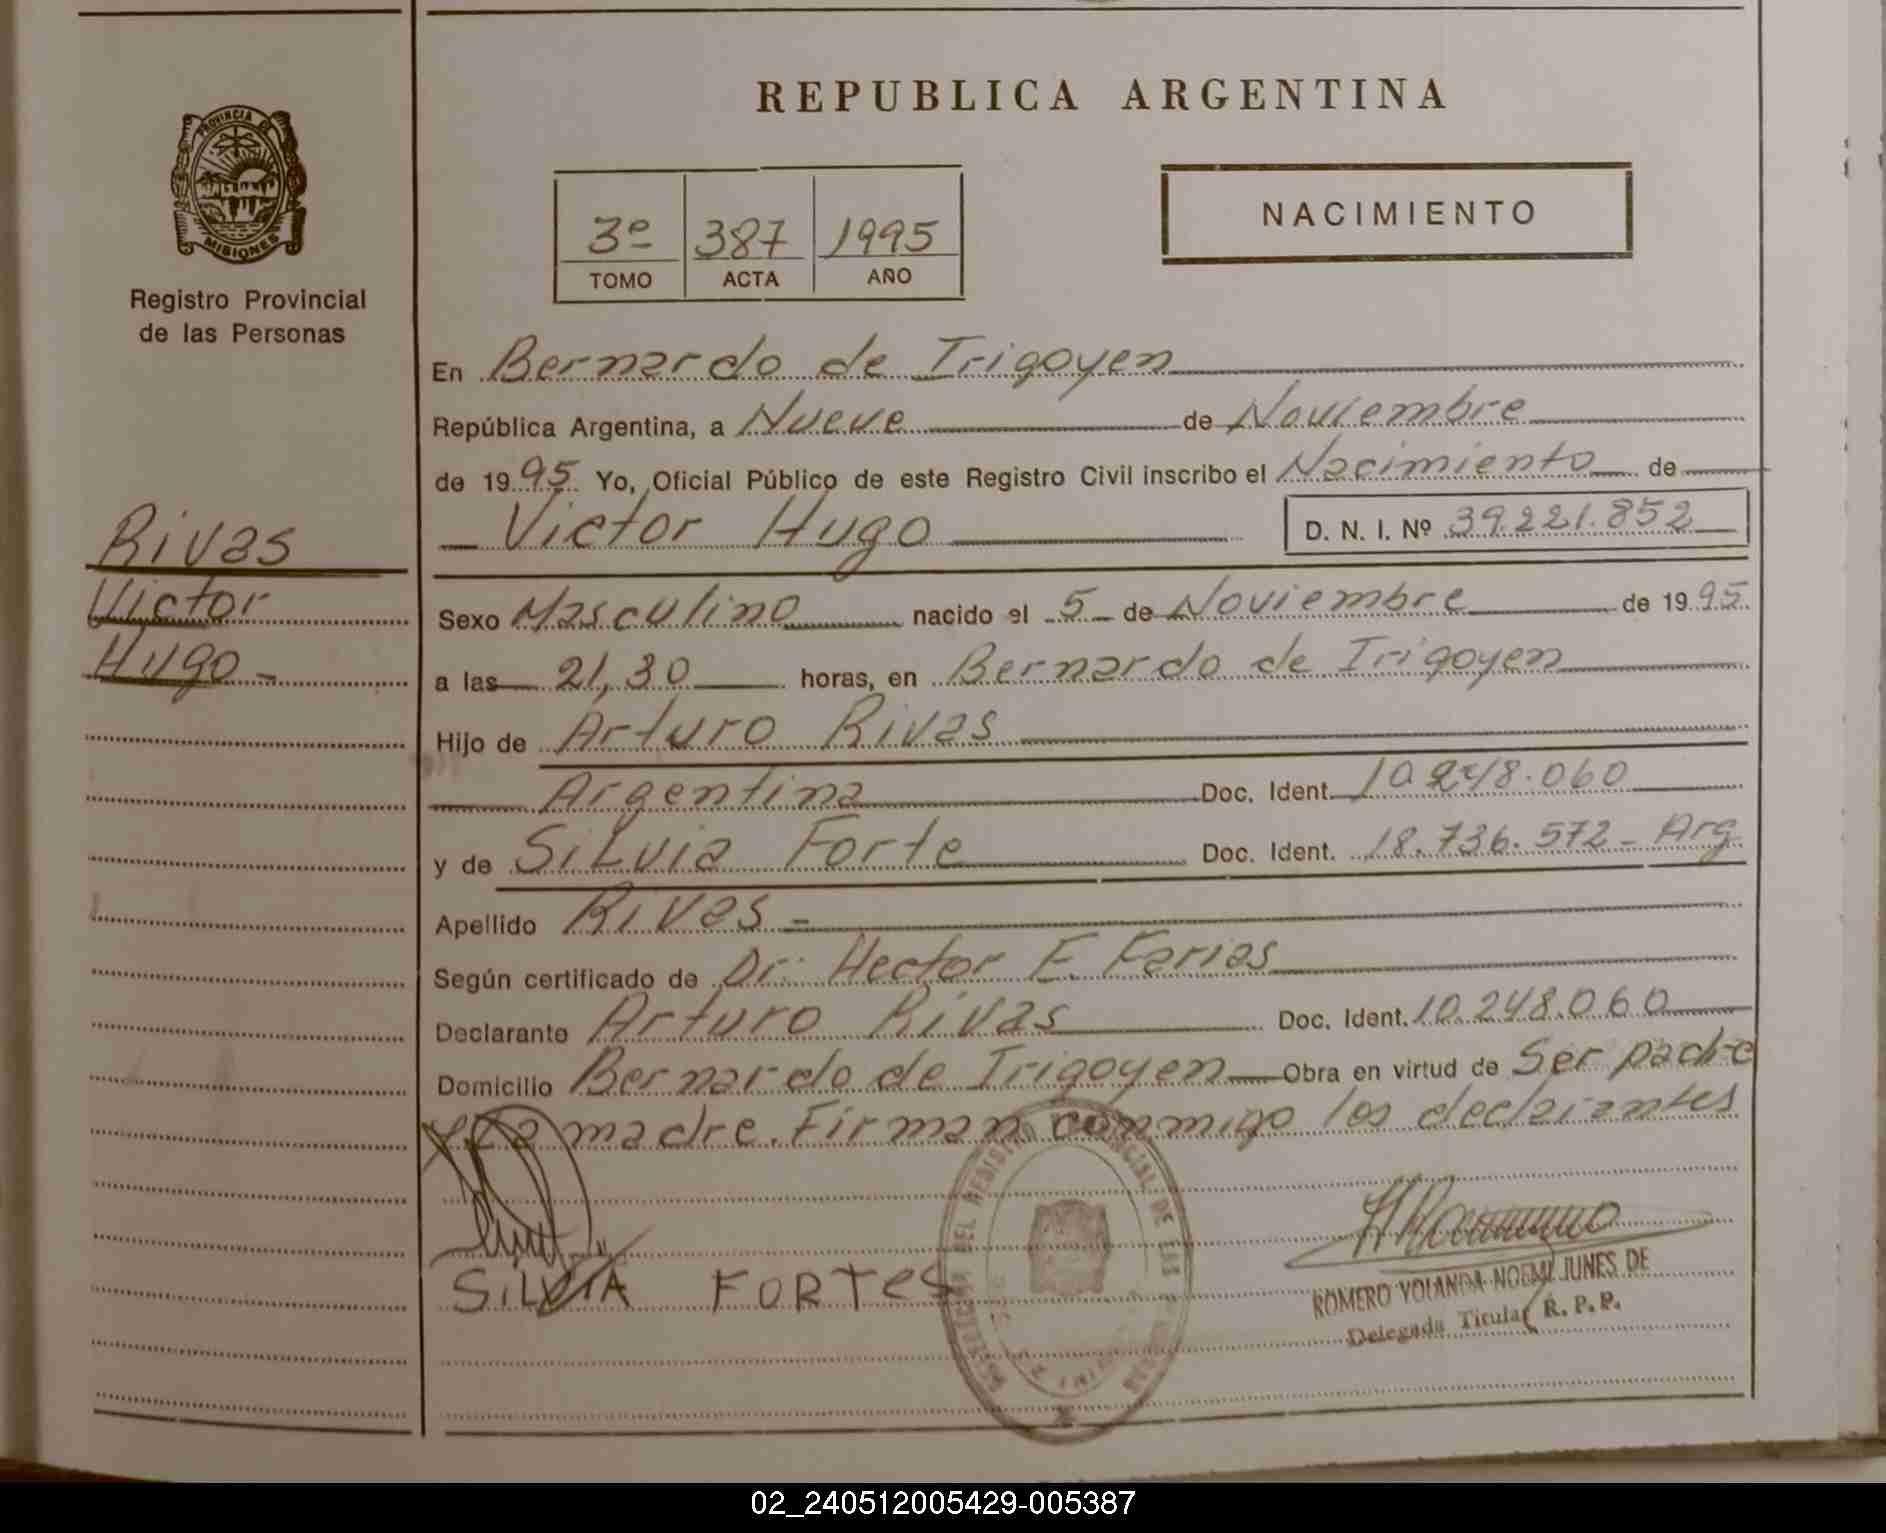 REPUBLICA ARGENTINA
PROVINCIA DE
MISIONES
Registro Provincial
de las Personas
3º 387 1995
TOMO ACTA AÑO
NACIMIENTO
En Bernardo de Irigoyen
República Argentina, a Nueve de Noviembre
de 1995 Yo, Oficial Público de este Registro Civil inscribo el Nacimiento de
Victor Hugo D. N. I. Nº 39.221.852
Rivas
Victor
Hugo -
Sexo Masculino nacido el 5 de Noviembre de 1995
a las 21,30 horas, en Bernardo de Irigoyen
Hijo de Arturo Rivas
Argentina Doc. Ident. 10.248.060
y de SiLvia Forte Doc. Ident. 18.736.572 - Arg
Apellido Rivas -
Según certificado de Dr. Hector E. Farias
Declarante Arturo Rivas Doc. Ident. 10.248.060
Domicilio Bernardo de Irigoyen Obra en virtud de Ser padre
madre. Firman conmigo los declarantes
SiLVIA FORTES
DEL REGISTRO PROVINCIAL DE LAS
ROMERO YOLANDA NOEMI JUNES DE
Delegada Titular R. P. P.
02_240512005429-005387